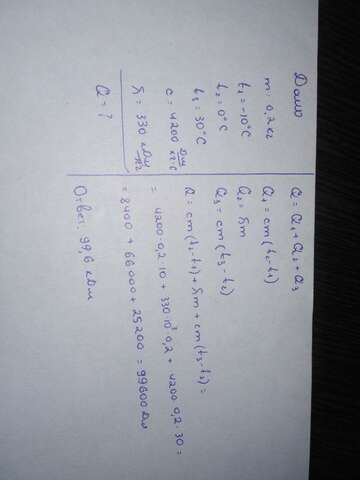 Дано
m = 0,2 кг
t₁ = -10°C
t₂ = 0°C
t₃ = 30°C
c = 4200 Дж/кг·°C
λ = 330 кДж/кг
Q = ?
Q = Q₁ + Q₂ + Q₃
Q₁ = cm(t₂-t₁)
Q₂ = λm
Q₃ = cm(t₃-t₂)
Q = cm(t₂-t₁) + λm + cm(t₃-t₂) =
= 4200·0,2·10 + 330·10³·0,2 + 4200·0,2·30 =
= 8400 + 66000 + 25200 = 99600 Дж
Ответ: 99,6 кДж